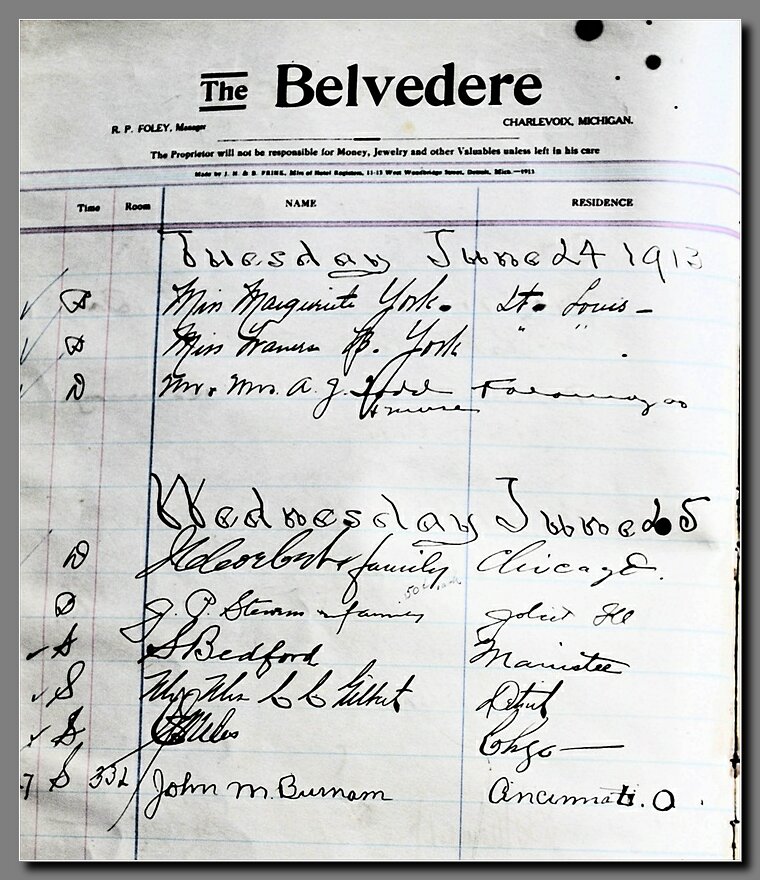 The Belvedere
R. P. FOLEY, Manager CHARLEVOIX, MICHIGAN.
The Proprietor will not be responsible for Money, Jewelry and other Valuables unless left in his care
Made by J. H. & D. FRINK, Mfrs of Hotel Registers, 11-13 West Woodbridge Street, Detroit, Mich.—1913
Time Room NAME RESIDENCE
Tuesday June 24 1913
D Miss Marguerite York. St. Louis —
D Miss Frances B. York " "
D Mr. & Mrs. A. J. Todd Kalamazoo
& nurse
Wednesday June 25
D & family Chicago.
D J. P. Stevens & family Joliet Ill
S S Bedford Manistee
S Mr & Mrs C C Gilbert Detroit
S Miles Chgo —
7 S 332 John M. Burnam Cincinnati. O.